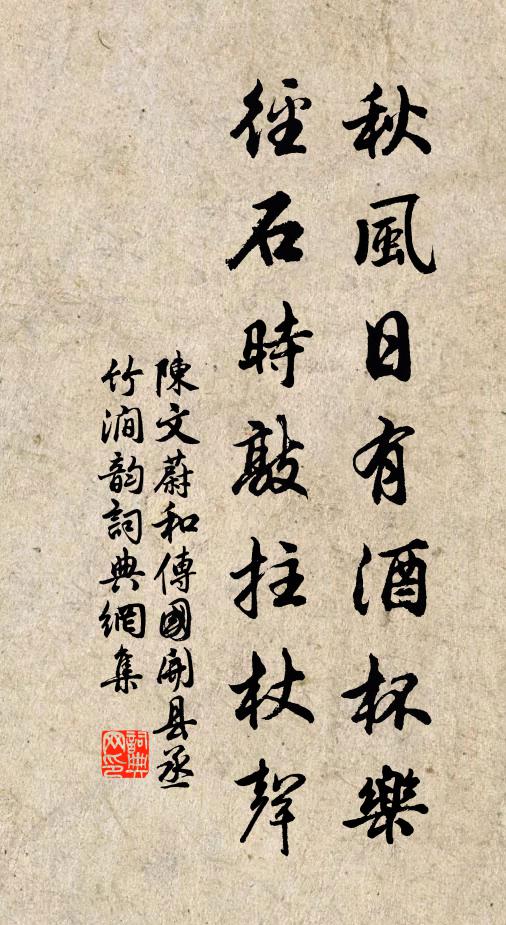 秋風日有酒杯樂
徑石時敲拄杖聲
陳文蔚和傅國開县丞
竹澗韵詞典網集
詞典網印